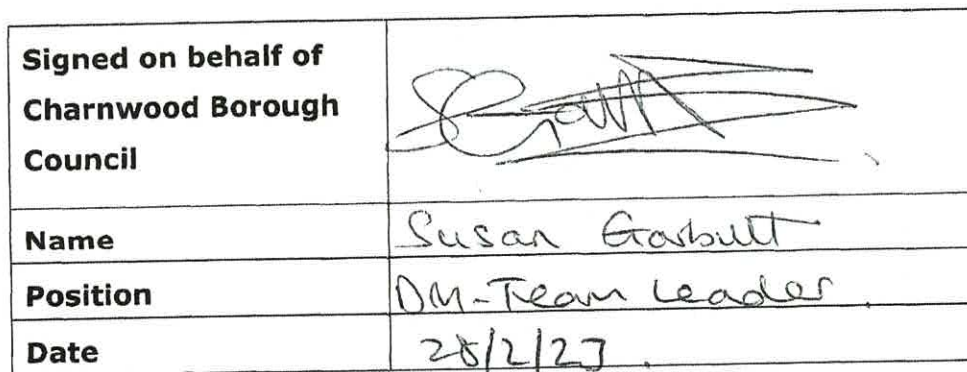 Signed on behalf of
Charnwood Borough
Council
Name Susan Garbutt
Position DM-Team Leader
Date